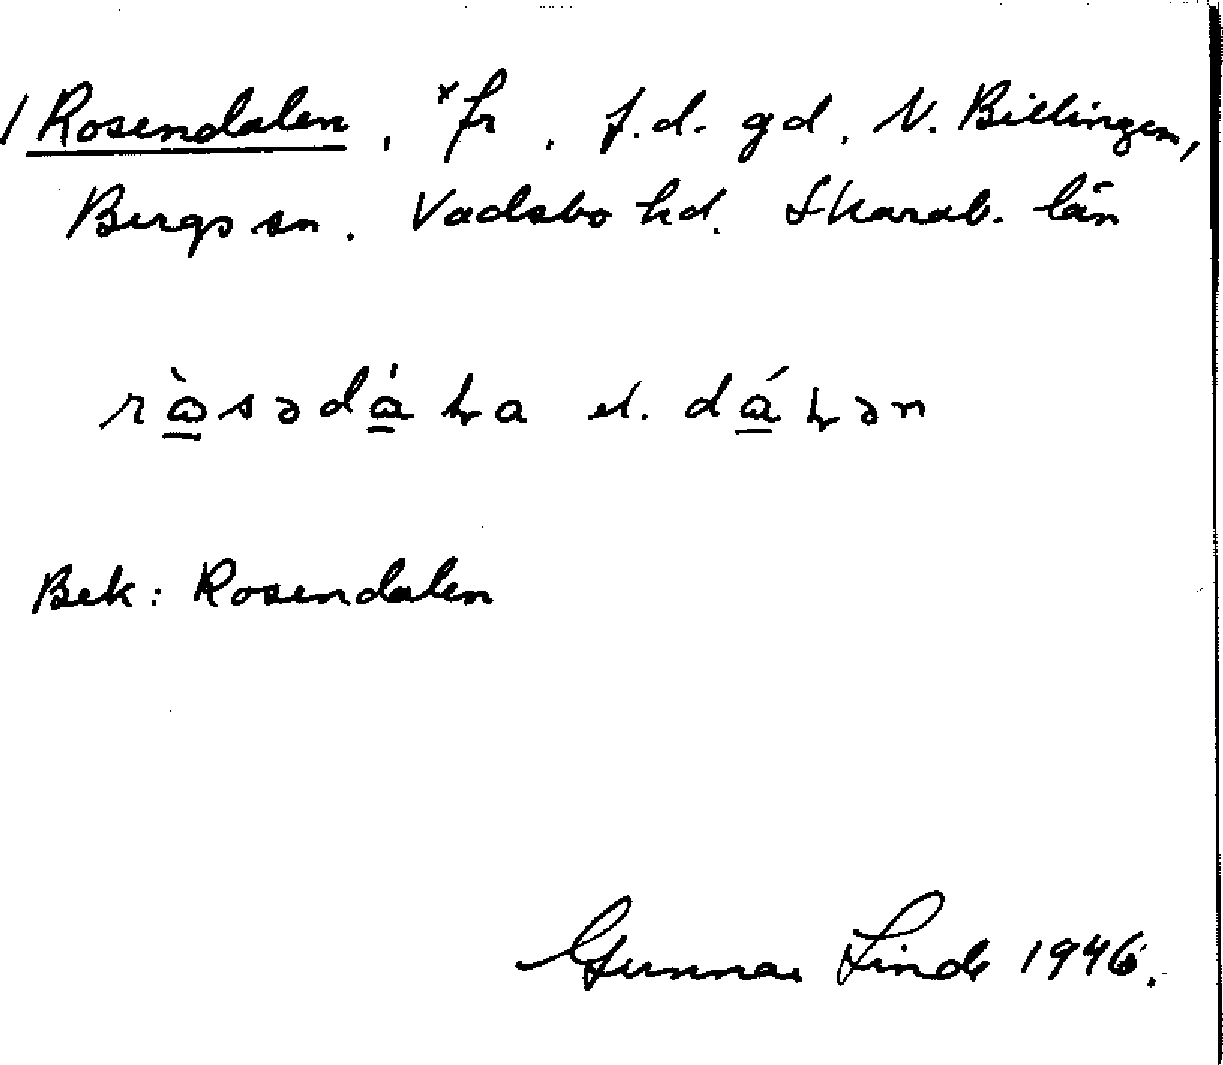 / Rosendalen, ˣfr. f.d. gd. N. Billingen,
Bergs sn. Vadsbo hd. Skarab. län
el.
Bek: Rosendalen
Gunnar Linde 1946.